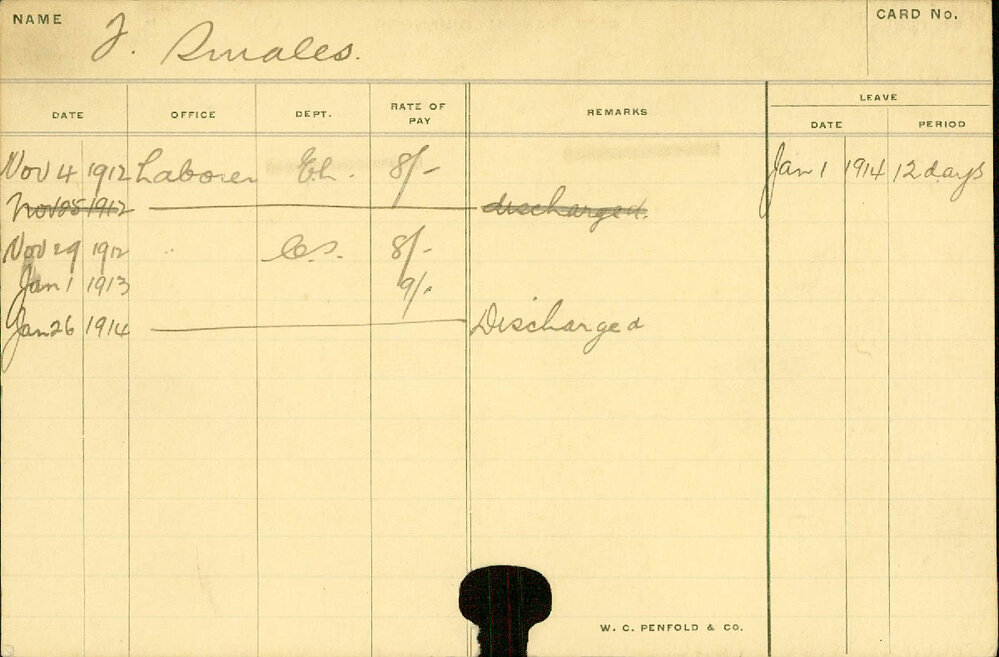 NAME F. Smales. CARD No.
LEAVE
DATE OFFICE DEPT. RATE OF PAY REMARKS DATE PERIOD
Nov 4 1912 Laborer Eh. 8/- Jan 1 1914 12 days
Nov 28 1912 discharged.
Nov 29 1912 C.S. 8/-
Jan 1 1913 9/-
Jan 26 1914 Discharged
W. C. PENFOLD & CO.